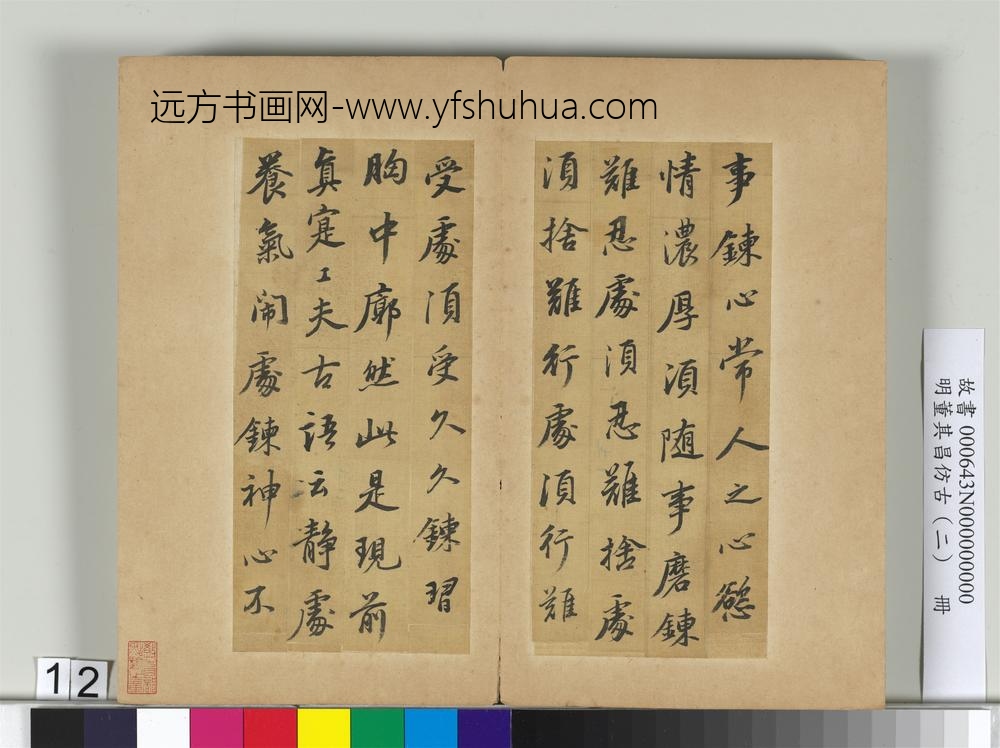 远方书画网-www.yfshuhua.com
事鍊心常人之心慾
情濃厚湏随事磨鍊
難忍處湏忍難捨處
湏捨難行處湏行難
受處湏受久久鍊習
胸中廓然此是現前
真寔工夫古語云静處
養氣閙處鍊神心不
故書 000643N000000000
明董其昌仿古(二) 冊
12